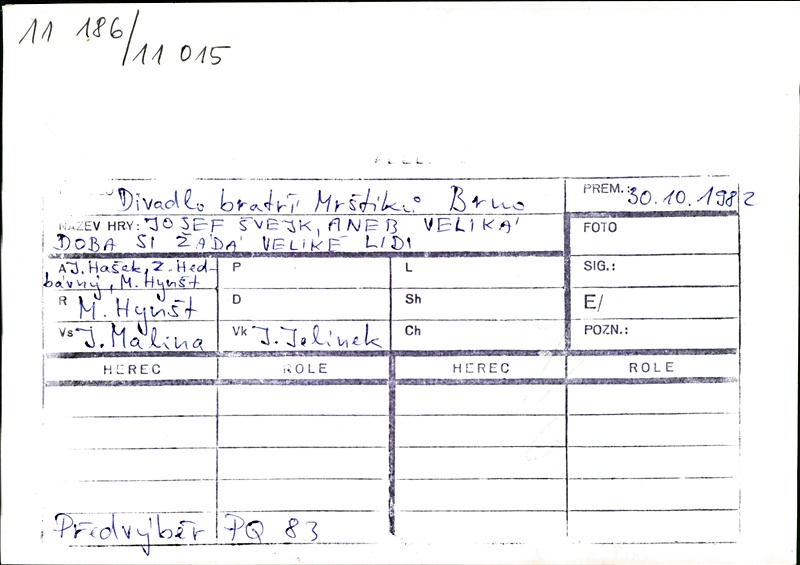 11 186/11 015
Divadlo bratří Mrštíků Brno
PREM.: 30.10.1982
NÁZEV HRY: JOSEF ŠVEJK, ANEB VELIKÁ
DOBA SI ŽÁDÁ VELIKÉ LIDI
FOTO
A J. Hašek, Z. Hed-
bávný, M. Hynšt
P
L
SIG.:
R M. Hynšt
D
Sh
E/
Vs J. Malina
Vk J. Jelínek
Ch
POZN.:
HEREC ROLE HEREC ROLE
Předvýběr PQ 83